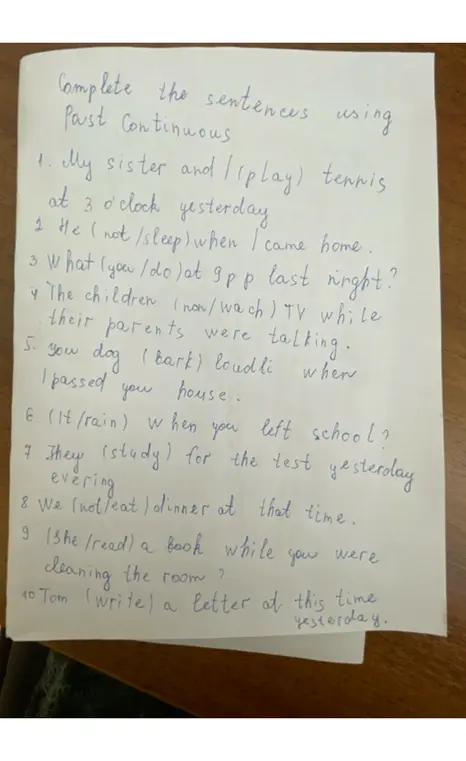 Complete the sentences using
Past Continuous
1. My sister and I (play) tennis
at 3 o'clock yesterday
2 He (not/sleep) when I came home.
3 What (you/do) at 9 p p last night?
4 The children (non/wach) TV while
their parents were talking.
5. you dog (bark) loudli when
I passed you house.
6 (It/rain) when you left school?
7 They (study) for the test yesterday
evering
8 We (not/eat) dinner at that time.
9 (She/read) a book while you were
cleaning the room?
10 Tom (write) a letter at this time
yesterday.